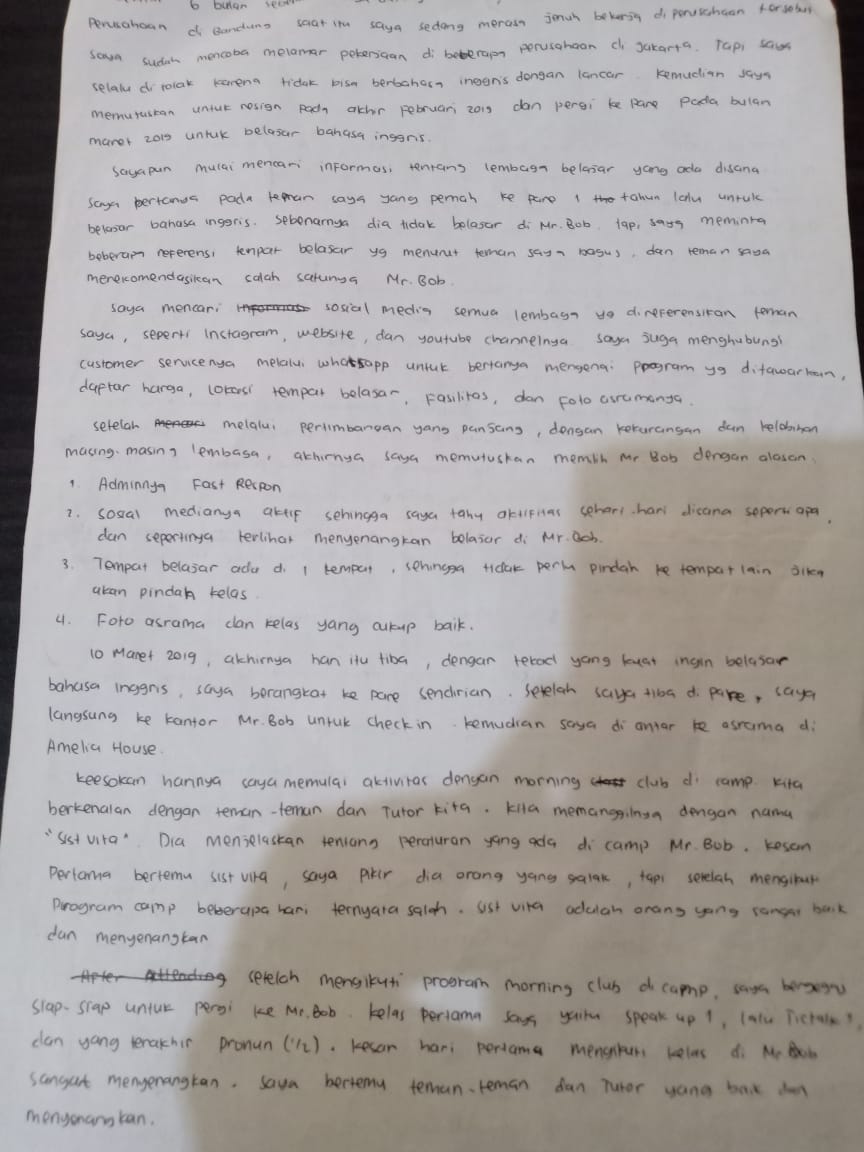 6 bulan
Perusahaan di Bandung saat itu saya sedang merasa jenuh bekerja di perusahaan tersebut
saya sudah mencoba melamar pekerjaan di beberapa perusahaan di Jakarta. Tapi saya
selalu di tolak karena tidak bisa berbahasa inggris dengan lancar. Kemudian saya
memutuskan untuk resign pada akhir Februari 2019 dan pergi ke Pare pada bulan
maret 2019 untuk belajar bahasa inggris.
Sayapun mulai mencari informasi tentang lembaga belajar yang ada disana
saya bertanya pada teman saya yang pernah ke pare 1 tahun lalu untuk
belajar bahasa inggris. Sebenarnya dia tidak belajar di Mr. Bob, tapi saya meminta
beberapa referensi tempat belajar yg menurut teman saya bagus, dan teman saya
merekomendasikan salah satunya Mr. Bob.
Saya mencari informasi sosial media semua lembaga yg direferensikan teman
saya, seperti Instagram, website, dan youtube channelnya. saya juga menghubungi
customer servicenya melalui whatsapp untuk bertanya mengenai program yg ditawarkan,
daptar harga, lokasi tempat belajar, Fasilitas, dan foto asramanya.
setelah melalui pertimbangan yang panjang, dengan kekurangan dan kelebihan
masing-masing lembaga, akhirnya saya memutuskan memilih Mr Bob dengan alasan.
1. Adminnya Fast Respon
2. sosial medianya aktif sehingga saya tahu aktifitas sehari-hari disana seperti apa,
dan sepertinya terlihat menyenangkan belajar di Mr. Bob.
3. Tempat belajar ada di 1 tempat, sehingga tidak perlu pindah ke tempat lain jika
akan pindah kelas.
4. Foto asrama dan kelas yang cukup baik.
10 Maret 2019, akhirnya hari itu tiba, dengan tekad yang kuat ingin belajar
bahasa inggris, saya berangkat ke pare sendirian. setelah saya tiba di pare, saya
langsung ke kantor Mr. Bob untuk check in. kemudian saya di antar ke asrama di
Amelia House.
keesokan harinya saya memulai aktivitas dengan morning class club di camp. kita
berkenalan dengan teman-teman dan Tutor kita. kita memanggilnya dengan nama
"sist vita". Dia menjelaskan tentang peraturan yang ada di camp Mr. Bob. kesan
Pertama bertemu sist vita, saya pikir dia orang yang galak, tapi setelah mengikuti
Program camp beberapa hari ternyata salah. sist vita adalah orang yang sangat baik
dan menyenangkan
After Attending setelah mengikuti program morning club di camp, saya bergegas
siap-siap untuk pergi ke Mr. Bob. kelas pertama saya yaitu speak up 1, lalu Tictalk 1,
dan yang terakhir pronun (1/2). kesan hari pertama mengikuti kelas di Mr Bob
sangat menyenangkan. saya bertemu teman-teman dan Tutor yang baik dan
menyenangkan.